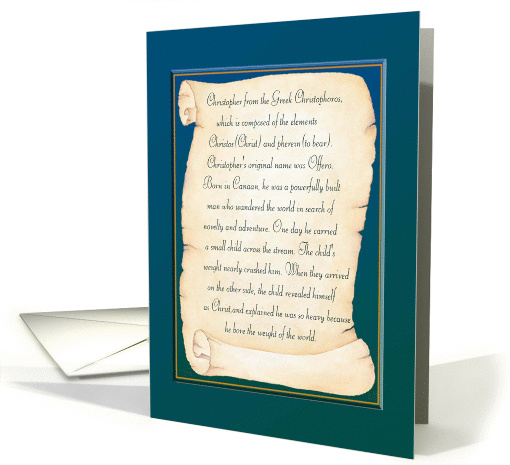 Christopher from the Greek Christophoros,
which is composed of the elements
Christos (Christ) and pherein (to bear).
Christopher's original name was Offero.
Born in Canaan, he was a powerfully built
man who wandered the world in search of
novelty and adventure. One day he carried
a small child across the stream. The child's
weight nearly crashed him. When they arrived
on the other side, the child revealed himself
as Christ,and explained he was so heavy because
he bore the weight of the world.